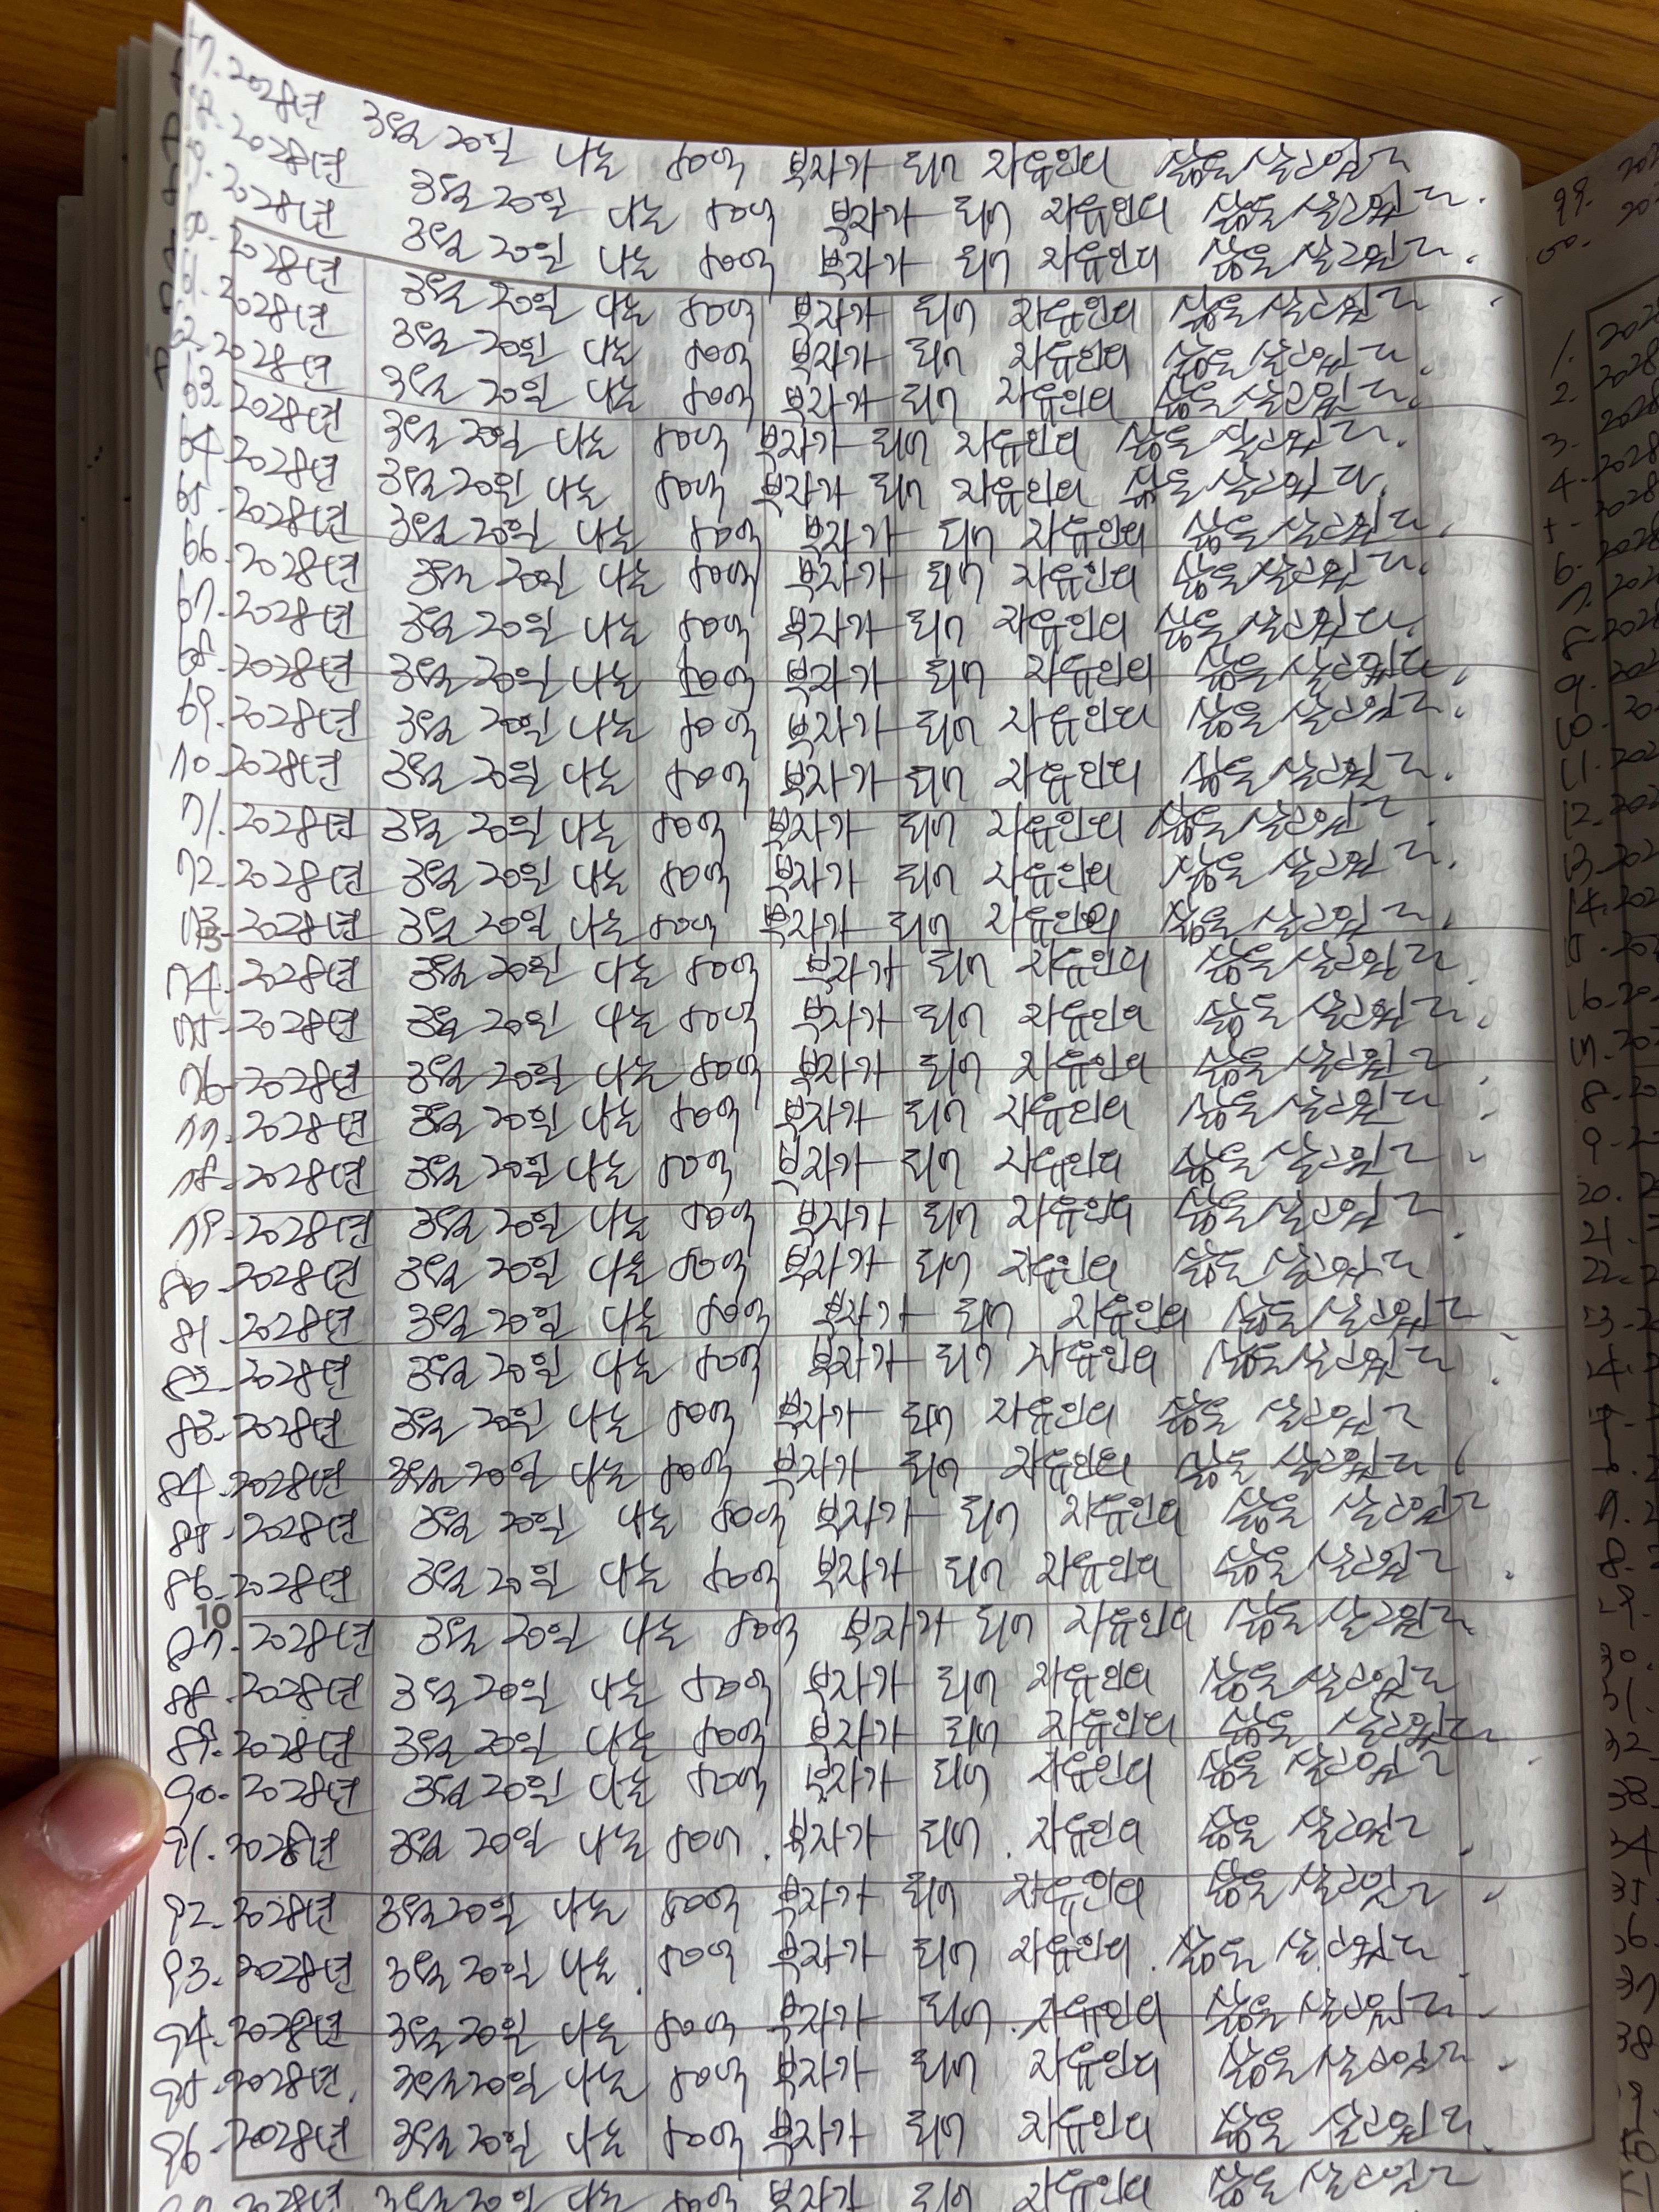 57. 2028년 3월 20일 나는 80억 부자가 되어 자유인의 삶을 살고있다
58. 2028년 3월 20일 나는 80억 부자가 되어 자유인의 삶을 살고있다.
59. 2028년 3월 20일 나는 80억 부자가 되어 자유인의 삶을 살고있다.
60. 2028년 3월 20일 나는 80억 부자가 되어 자유인의 삶을 살고있다.
61. 2028년 3월 20일 나는 80억 부자가 되어 자유인의 삶을 살고있다.
62. 2028년 3월 20일 나는 80억 부자가 되어 자유인의 삶을 살고있다.
63. 2028년 3월 20일 나는 80억 부자가 되어 자유인의 삶을 살고있다.
64. 2028년 3월 20일 나는 80억 부자가 되어 자유인의 삶을 살고있다.
65. 2028년 3월 20일 나는 80억 부자가 되어 자유인의 삶을 살고있다.
66. 2028년 3월 20일 나는 80억 부자가 되어 자유인의 삶을 살고있다.
67. 2028년 3월 20일 나는 80억 부자가 되어 자유인의 삶을 살고있다.
68. 2028년 3월 20일 나는 80억 부자가 되어 자유인의 삶을 살고있다.
69. 2028년 3월 20일 나는 80억 부자가 되어 자유인의 삶을 살고있다.
70. 2028년 3월 20일 나는 80억 부자가 되어 자유인의 삶을 살고있다.
71. 2028년 3월 20일 나는 80억 부자가 되어 자유인의 삶을 살고있다.
72. 2028년 3월 20일 나는 80억 부자가 되어 자유인의 삶을 살고있다.
73. 2028년 3월 20일 나는 80억 부자가 되어 자유인의 삶을 살고있다.
74. 2028년 3월 20일 나는 80억 부자가 되어 자유인의 삶을 살고있다.
75. 2028년 3월 20일 나는 80억 부자가 되어 자유인의 삶을 살고있다.
76. 2028년 3월 20일 나는 80억 부자가 되어 자유인의 삶을 살고있다.
77. 2028년 3월 20일 나는 80억 부자가 되어 자유인의 삶을 살고있다.
78. 2028년 3월 20일 나는 80억 부자가 되어 자유인의 삶을 살고있다.
79. 2028년 3월 20일 나는 80억 부자가 되어 자유인의 삶을 살고있다.
80. 2028년 3월 20일 나는 80억 부자가 되어 자유인의 삶을 살고있다
81. 2028년 3월 20일 나는 80억 부자가 되어 자유인의 삶을 살고있다.
82. 2028년 3월 20일 나는 80억 부자가 되어 자유인의 삶을 살고있다.
83. 2028년 3월 20일 나는 80억 부자가 되어 자유인의 삶을 살고있다
84. 2028년 3월 20일 나는 80억 부자가 되어 자유인의 삶을 살고있다.
85. 2028년 3월 20일 나는 80억 부자가 되어 자유인의 삶을 살고있다
86. 2028년 3월 20일 나는 80억 부자가 되어 자유인의 삶을 살고있다.
10
87. 2028년 3월 20일 나는 80억 부자가 되어 자유인의 삶을 살고있다.
88. 2028년 3월 20일 나는 80억 부자가 되어 자유인의 삶을 살고있다
89. 2028년 3월 20일 나는 80억 부자가 되어 자유인의 삶을 살고있다.
90. 2028년 3월 20일 나는 80억 부자가 되어 자유인의 삶을 살고있다
91. 2028년 3월 20일 나는 80억 부자가 되어 자유인의 삶을 살고있다.
92. 2028년 3월 20일 나는 80억 부자가 되어 자유인의 삶을 살고있다.
93. 2028년 3월 20일 나는 80억 부자가 되어 자유인의 삶을 살고있다.
94. 2028년 3월 20일 나는 80억 부자가 되어 자유인의 삶을 살고있다.
95. 2028년 3월 20일 나는 80억 부자가 되어 자유인의 삶을 살고있다.
96. 2028년 3월 20일 나는 80억 부자가 되어 자유인의 삶을 살고있다.
97. 2028년 3월 20일 나는 80억 부자가 되어 자유인의 삶을 살고있다
99.
1. 202
2. 2028
3. 2028
4. 2028
5. 2028
6. 2028
7. 202
8. 2028
9. 202
10. 20
11. 202
12. 202
13. 202
14. 202
16. 20
20.
21.
22.
32.
38.